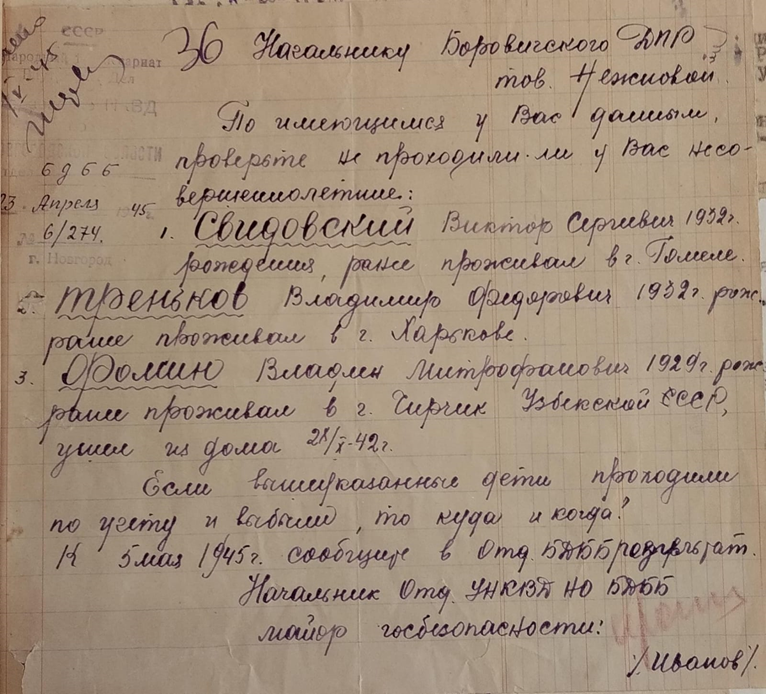 СССР
36 Начальнику Боровичского ДПР
тов. Нежновой.
По имеющимся у Вас данным,
БДББ проверьте не проходили-ли у Вас несо-
23 Апреля 1945 вершеннолетние:
6/274. 1. Свидовский Виктор Сергиевич 1932г.
г. Новгород рождения, ранее проживал в г. Гомеле.
2. Треньков Владимир Федорович 1932г. рож.
ранее проживал в г. Харькове.
3. Фомин Владлен Митрофанович 1929г. рож.
ранее проживал в г. Чирчик Узбекской СССР,
ушел из дома 28/X-42г.
Если вышеуказанные дети проходили
по учету и выбыли, то куда и когда?
К 5 мая 1945г. сообщите в Отд. БДББ результат.
Начальник Отд. УНКВД НО БДББ
майор госбезопасности:
/Иванов/.